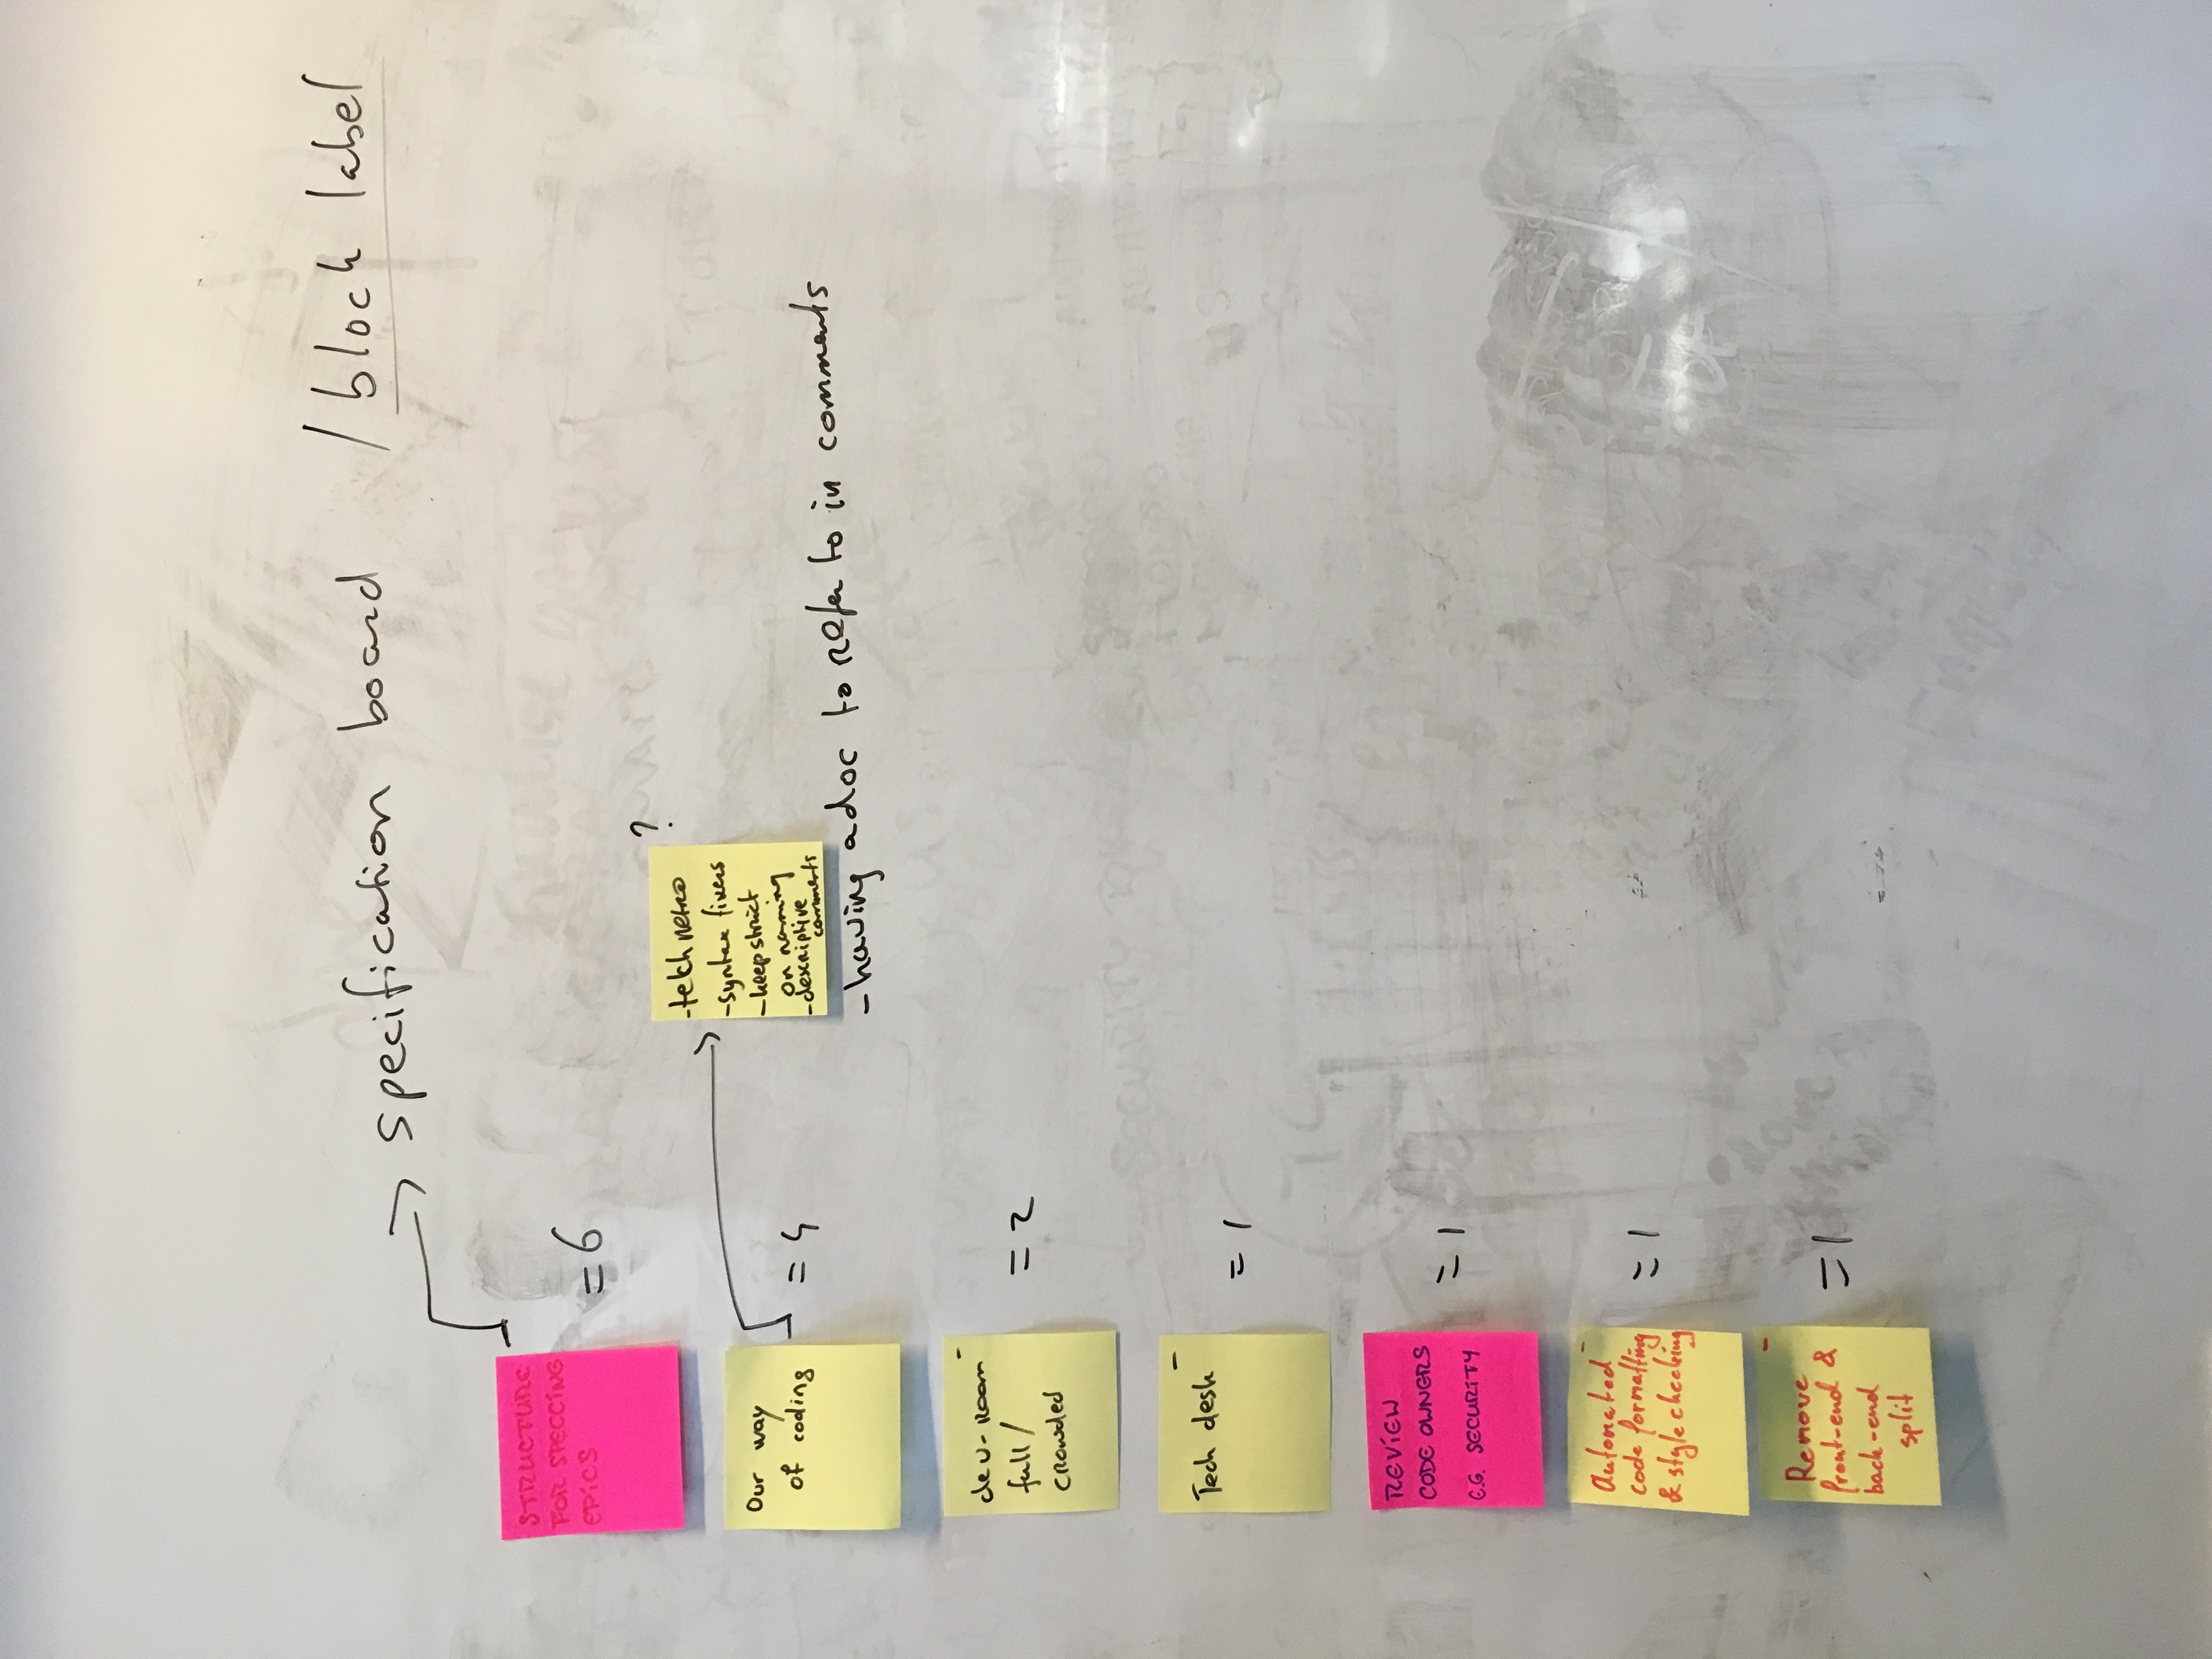 specification board / block label
STRUCTURE
FOR SPECCING
EPICS
= 6
Our way
of coding
= 4
?
- tech retro
- syntax fixers
- keep strict
on naming
- descriptive
comments
- having a doc to refer to in comments
dev-room
full /
crowded
= 2
Tech desk
= 1
REVIEW
CODE OWNERS
E.G. SECURITY
= 1
Automated
code formatting
& style checking
= 1
Remove
front-end &
back-end
split
= 1